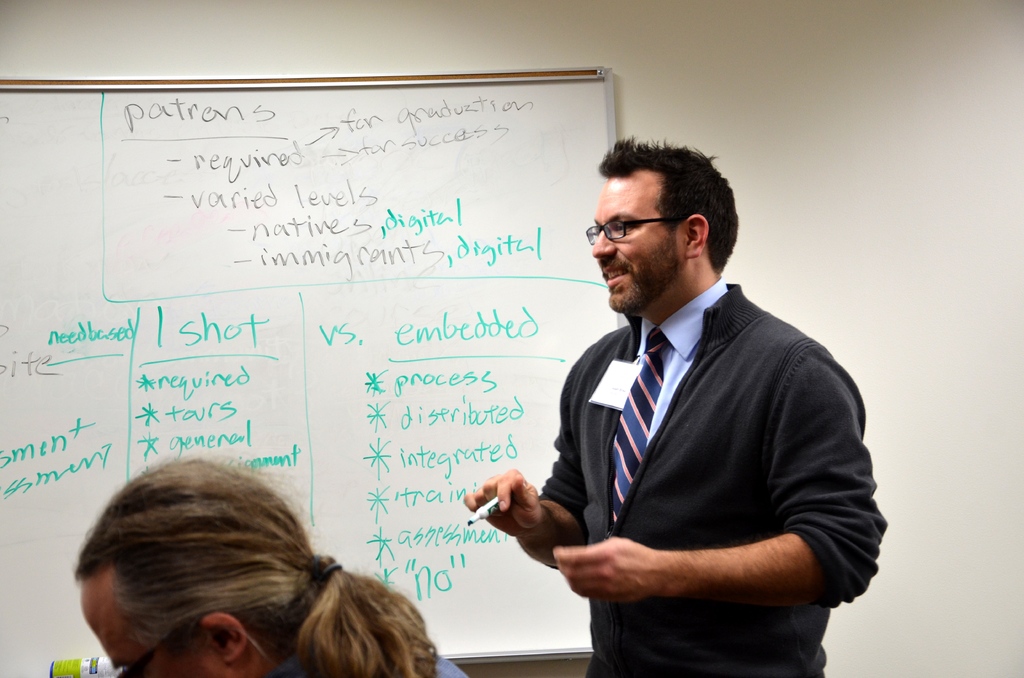 patrons
- required → for graduation
→ for success
- varied levels
- natives, digital
- immigrants, digital
needbased
1 shot
vs. embedded
site
* required
* tours
* general
* process
* distributed
* integrated
* assessment
* "no"